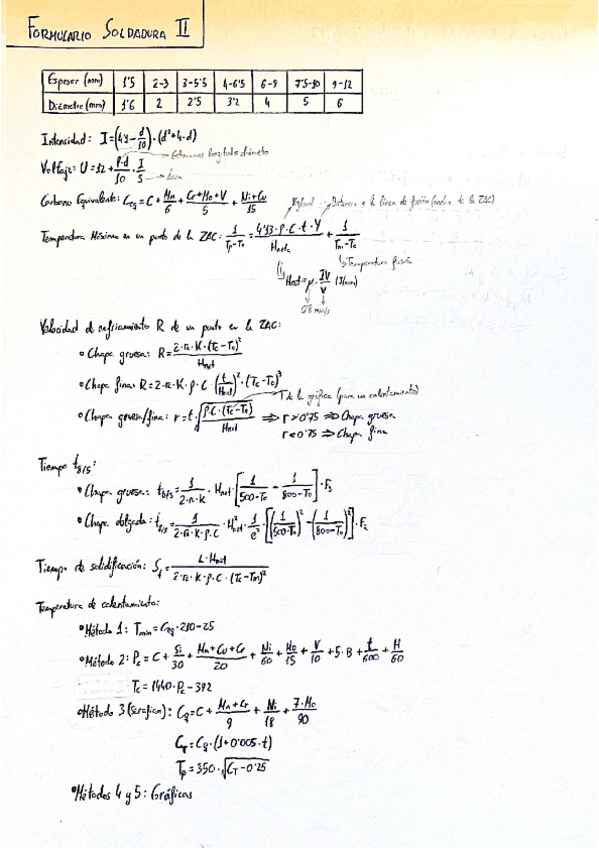 FORMULARIO SOLDADURA II
Espesor (mm) 1'5 2-3 3-5'5 4-6'5 6-9 7'5-10 9-12
Diámetro (mm) 1'6 2 2'5 3'2 4 5 6
Intensidad: I=(44-d/10)·(d²+4·d)
Estimamos longitudes diámetro
Voltaje: U=12+ρ·d/10·I/S
Carbono Equivalente: Ceq=C+Mn/6+Cr+Mo+V/5+Ni+Cu/15
Distancia a la línea de fusión (anchura de la ZAC)
Temperatura Máxima en un punto de la ZAC: 1/Tp-To=4'13·ρ·C·t·Y/Hnet+1/Tm-To
Temperatura fusión
Hnet=μ·IV/v (J/mm)
mm/s
Velocidad de enfriamiento R de un punto en la ZAC:
• Chapa gruesa: R=2·π·K·(Tc-To)²/Hnet
• Chapa fina: R=2·π·K·ρ·C·(t/Hnet)²·(Tc-To)³
T de la gráfica (para un calentamiento)
• Chapa gruesa/fina: r=t·√ρ·C·(Tc-To)/Hnet ⇒ r>0'75 ⇒ Chapa gruesa
r<0'75 ⇒ Chapa fina
Tiempo t8/5:
• Chapa gruesa: t8/5=1/2·π·K·Hnet·[1/500-To-1/800-To]·F3
• Chapa delgada: t8/5=1/2·π·K·ρ·C·H²net·1/e²·[(1/500-To)²-(1/800-To)²]·F2
Tiempo de solidificación: St=L·Hnet/2·π·K·ρ·C·(Tc-Tm)²
Temperatura de calentamiento:
• Método 1: Tmin=Ceq·210-25
• Método 2: Pc=C+Si/30+Mn+Cu+Cr/20+Ni/60+Mo/15+V/10+5·B+t/600+H/60
Tc=1440·Pc-392
• Método 3 (Seferian): Cq=C+Mn+Cr/9+Ni/18+7·Mo/90
CT=Cq·(1+0'005·t)
Tp=350·√CT-0'25
• Métodos 4 y 5: Gráficas